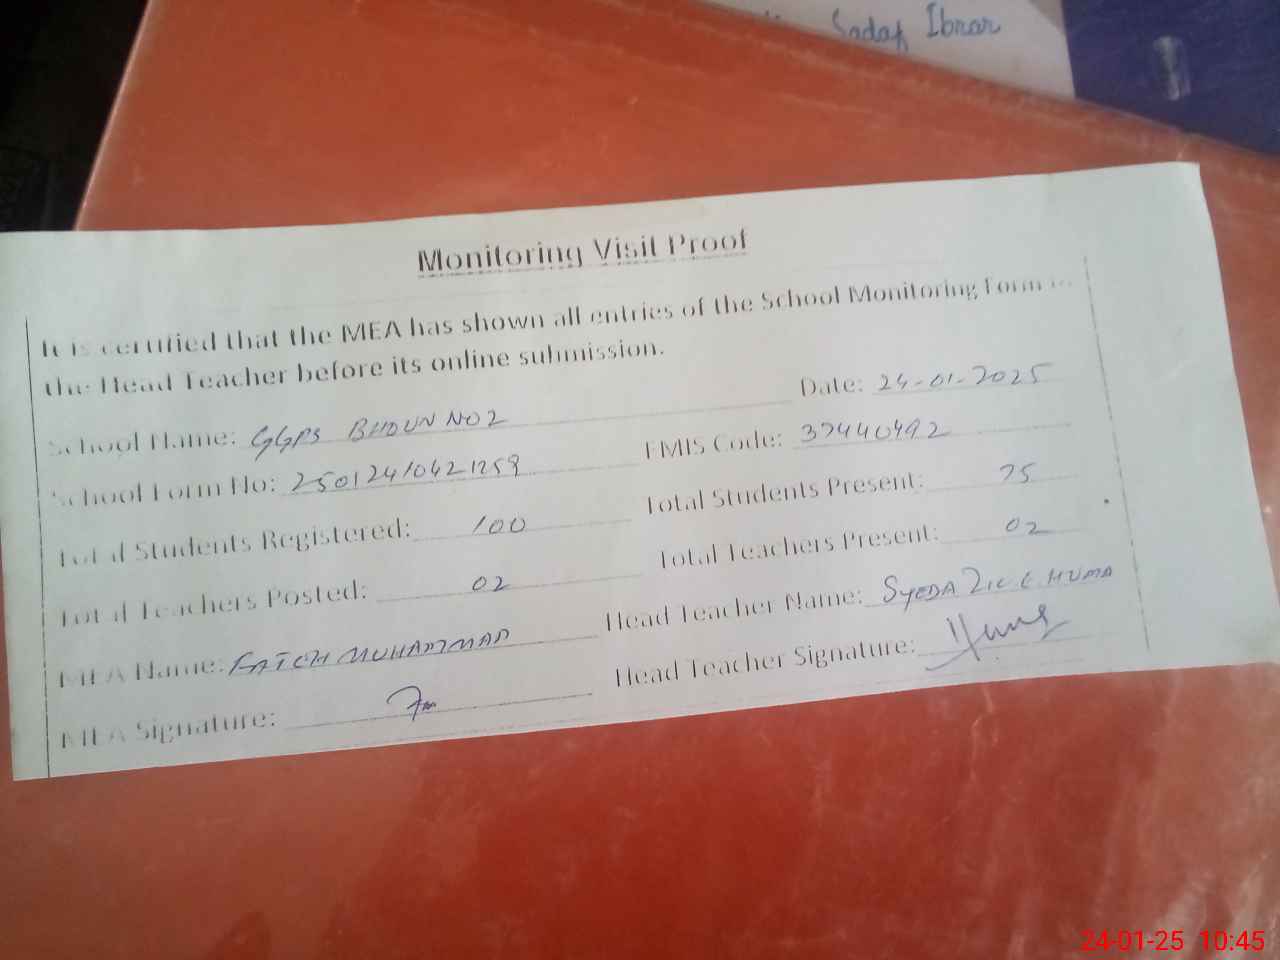 Sadaf Ibrar
Monitoring Visit Proof
It is certified that the MEA has shown all entries of the School Monitoring Form to
the Head Teacher before its online submission.
School Name: GGPS BHOUN NO 2 Date: 24-01-2025
School Form No: 250124104212 EMIS Code: 37440492
Total Students Registered: 100 Total Students Present: 75
Total Teachers Posted: 02 Total Teachers Present: 02
MEA Name: FATEH MUHAMMAD Head Teacher Name: SYEDA ZIL E HUMA
MEA Signature: Head Teacher Signature:
24-01-25 10:45